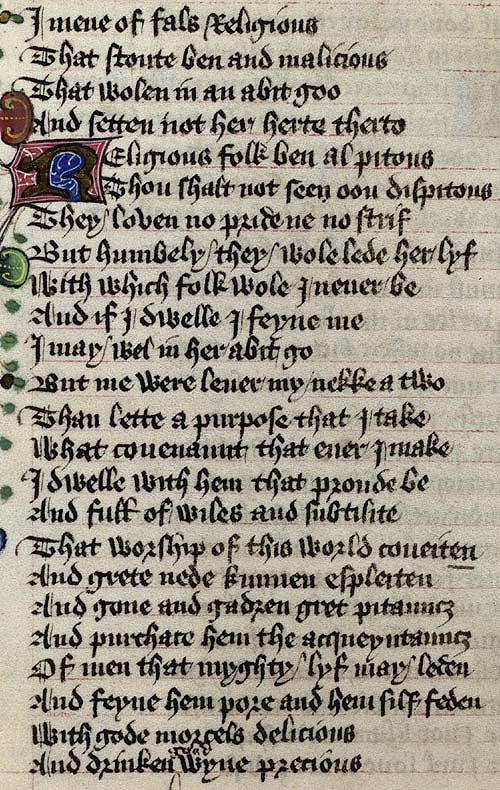 I mene of fals Religious
That stoute ben and malicious
That wolen in an abit goo
And setten not her herte therto
Religious folk ben al pitous
Thou shalt not seen oon dispitous
They loven no pride ne no strif
But humbely they wole lede her lyf
With which folk wole I neuer be
And if I dwelle I feyne me
I may wel in her abit go
But me were leuer my nekke a two
Than lette a purpose that I take
What couenaunt that euer I make
I dwelle with hem that proude be
And full of wiles and subtilite
That worship of this world coueiten
And grete nede kunnen espleiten
And gone and gadren gret pitauncz
And purchace hem the acqueyntauncz
Of men that myghty lyf may leden
And feyne hem pore and hem silf feden
With gode morcels delicious
And drinken good wyne precious